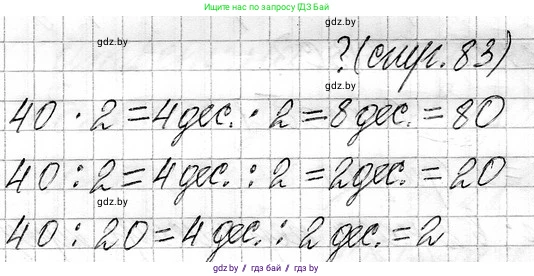 Ищите нас по запросу ГДЗ БАЙ
gdz.by
?(стр. 83)
gdz.by
40 · 2 = 4 дес. · 2 = 8 дес. = 80
40 : 2 = 4 дес. : 2 = 2 дес. = 20
gdz.by
40 : 20 = 4 дес. : 2 дес. = 2
gdz.by / гдз бай / гдз.by